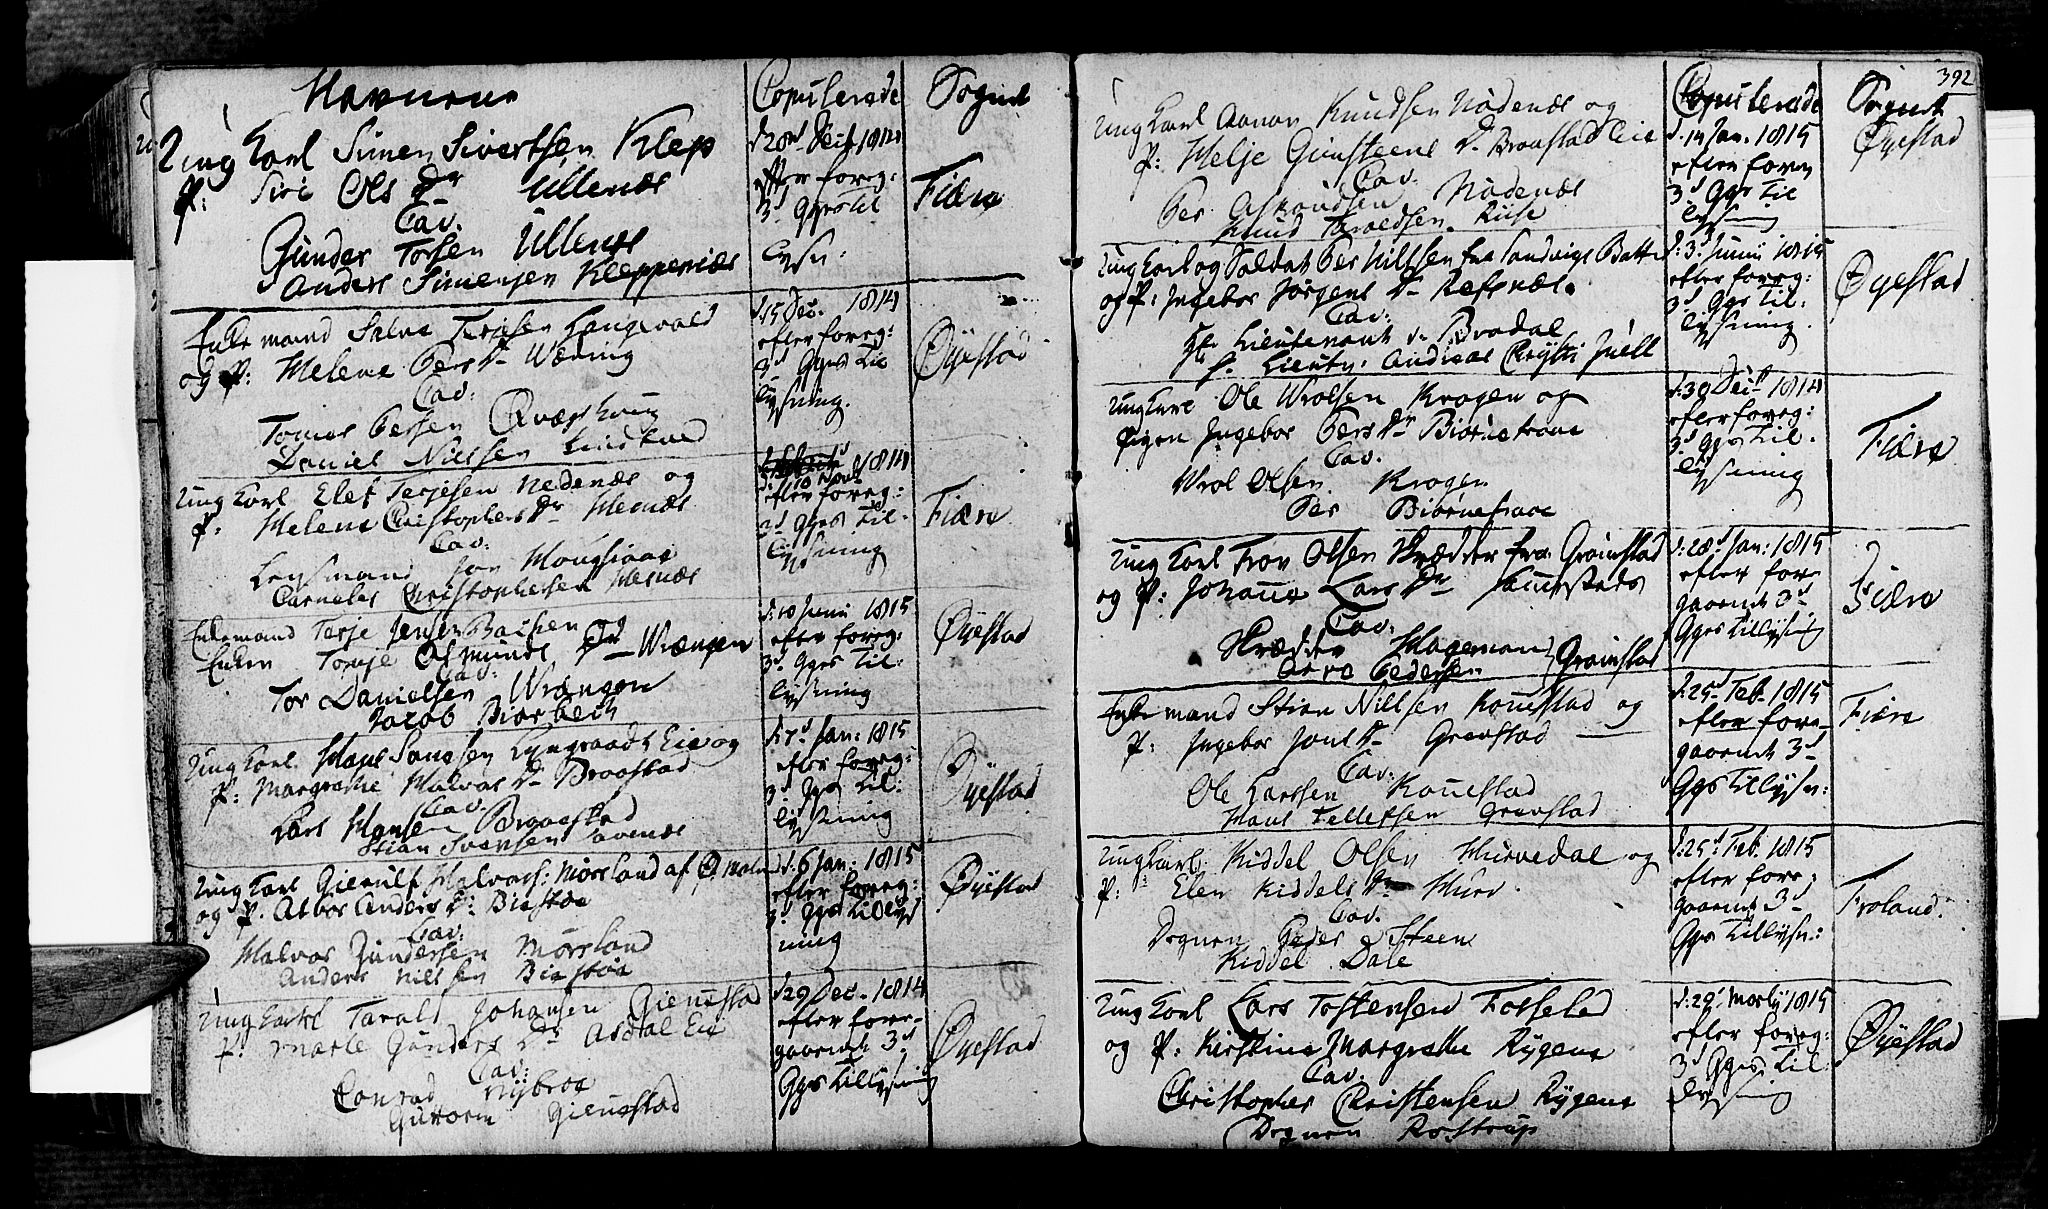 Navnene
Copulerede
Sognet
Ung Karl Simen Sivertsen Klep
P: Siri Ols Dr Ullenæs
Cav.
Gunder Torsen Ullenæs
Anders Simensen Kleppenæs
1814
efter foreg:
3d Ggrs til
lysn:
Fiære
Enkemand Salve Terjesen Langevold
og P: Helene Pers Dr Wæding
Cav:
Tomes Persen
Daniel Nilsen
d: 15 Dec. 1814
efter foreg:
3d Ggrs til
lysning.
Øyestad
Ung Karl Elef Terjesen Nedenæs og
P: Helene Christophers Dr Hesnæs
Cav:
Lensmand
Cornelus Christophersen Hesnæs
1814
efter foreg:
3d Ggrs til-
lysning
Fiære
Enkemand Terje Jensen
Enken Tomje Asmunds Dr Wrængen
Cav:
Tor Danielsen Wrængen
Jacob Biorbech
d: 10 Juni 1815
efter foreg:
3d Ggrs til:
lysning
Øyestad
Ung Karl Hans Eie og
P: Margrethe Halvors Dr Braastad
Cav.
Lars Hansen Braastad
Stian Svensen
d: 7d Jan: 1815
efter foreg:
3d Ggs til:
lysning
Øyestad
Ung Karl Gierulf Halvors: Mørland af
og P. Anders Dr Biestøe
Cav:
Halvor Gundersen Mørland
Anders Nilsen Biestøe
d: 6 Jan: 1815
efter foreg:
3d Ggrs tillys
ning
Øyestad
Ung Karl Tarald Johansen Gieustad
P: Marte Gunders Dr Asdal Eie
Cav:
Conrad Nybroe
Guttorm Gieustad
d: 29 Dec. 1814
efter fore-
gaaende 3d
Ggrs tillysning
Øyestad
392
Copulerede
Sognet
Ung Karl Aanon Knudsen Nødenæs og
P: Helje Gunsteens Dr Braastad Eie
Cav.
Per Nødenæs
Knud Taraldsen Riise
d: 14 Jan. 1815
efter foreg
3d Ggs til
lysning
Øyestad
Ung Karl og Soldat Per Nillsen fra Landvigs Batt:
og P: Ingebor Jørgens Dr Refsnæs.
Cav:
Hr Lieutenant v. Brodal
Lieutn: Andreas
d: 3d Junii 1815
efter foreg:
3d Ggs til:
lysning.
Øyestad
Ung Karl Ole Wrolsen Krogen og
Pigen Ingebor Pers Dr Biørnetraae
Cav.
Wrol Olsen Krogen
Per Biørnetraae
1814
efter foreg:
3d Ggs til-
lysning
Fiære
Ung Karl Trov Olsen Skrædder fra Grimstad
og P: Johanne Lars Dr
Cav:
Skrædder Hageman
Pedersen
Grimstad
d: 28d Jan: 1815
efter fore
gaaende 3d
Ggrs tillysning
Fiære
Enkemand Stian Nillsen Kouestad og
P: Ingebor Jons Dr Grevstad
Cav:
Ole Larssen Kouestad
Hans Tellefsen Grevstad
d: 25d Feb. 1815
efter fore-
gaaende 3d
Ggs tillysn:
Fiære
Ung Karl Kiddel Olsen Hurvedal og
P: Elen Kiddels Dr Hurv.
Cav.
Degnen Peder Steen
Kiddel Dale
d: 25d Feb. 1815
efter fore:
gaaende 3d
Ggs tillysn:
Froland.
Ung Karl Lars Tostensen Fosselid
og P: Kirstine Margrethe Rygene
Cav.
Christopher Christensen Rygene
Degnen Rostrup
d: 29d Marty 1815
efter foreg:
3d Ggrs til:
lysning
Øyestad